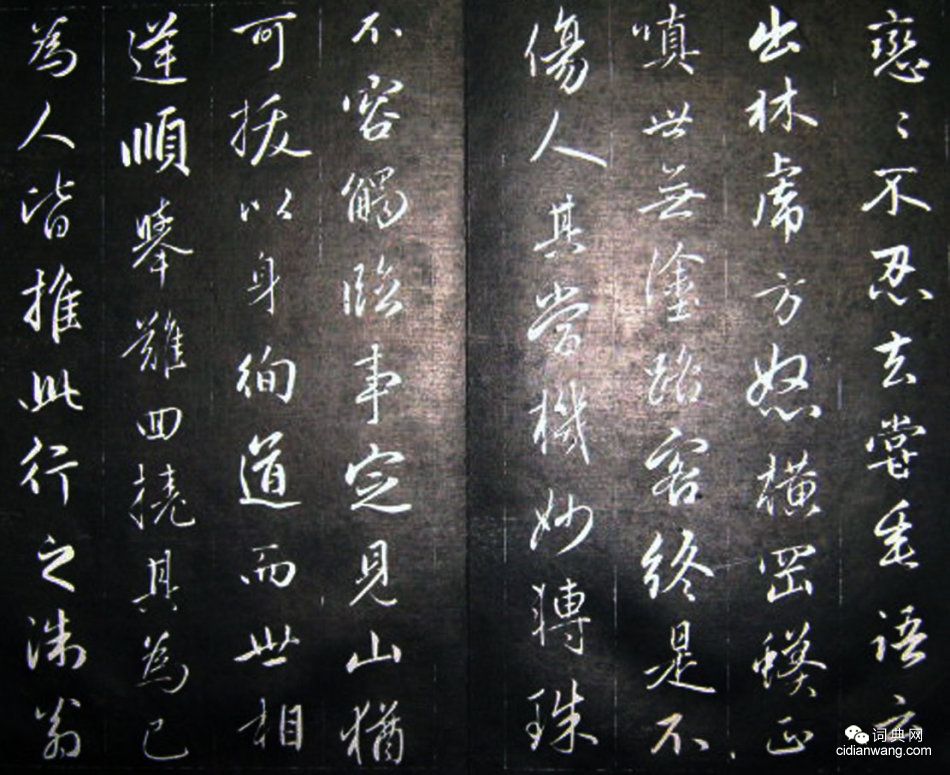 戀〻不忍去嘗垂語云
出林虎方怒橫岡蟒正
嗔世無塗路客終是不
傷人其當機妙轉珠
不容觸臨事定見山猶
可拔以身徇道而世相
逆順舉難回撓其為己
為人皆推此行之洙翁
词典网
cidianwang.com